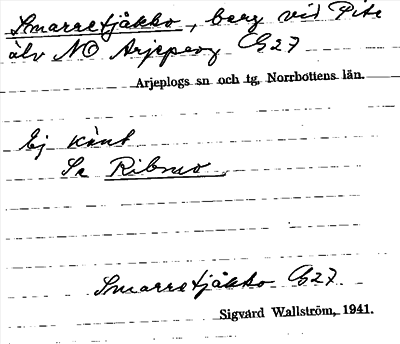 Smarretjåkko, berg vid Pite
älv NO Arjeplog G27
Arjeplogs sn och tg, Norrbottens län.
Ej känt
Se Ribmo.
Smarretjåkko G27
Sigvard Wallström, 1941.